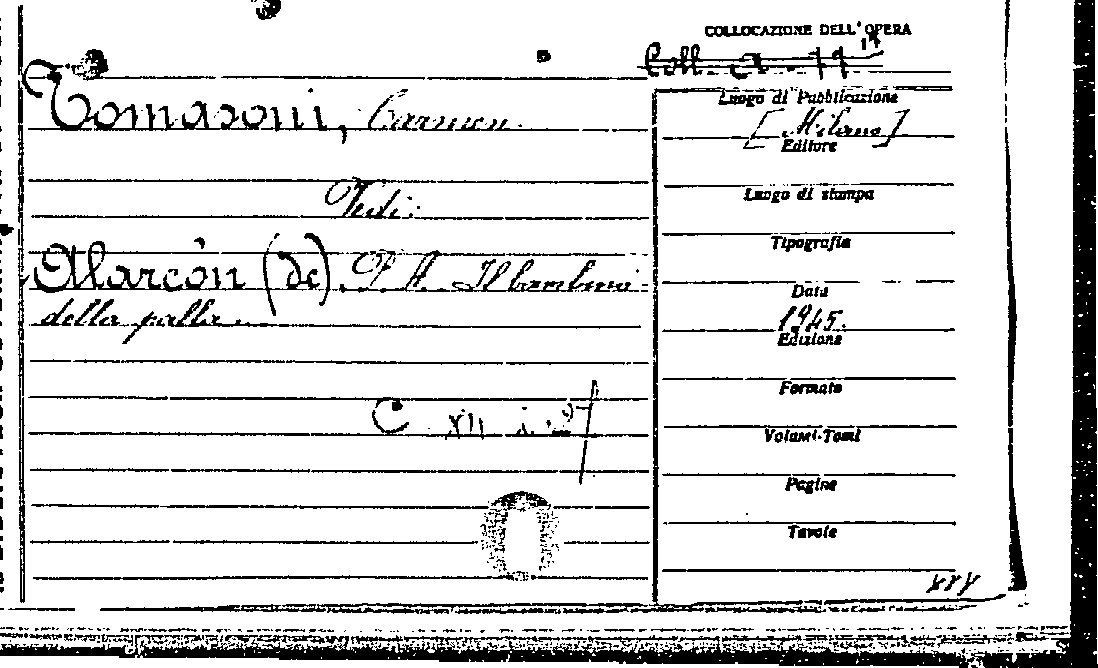 COLLOCAZIONE DELL'OPERA
Coll. A - 11
Tomasoni, Carmen.
Vedi:
Alarcòn (de). P. A. Il bambino
della palla.
Luogo di Pubblicazione
[Milano]
Editore
Luogo di stampa
Tipografia
Data
1945.
Edizione
Formato
Volumi-Tomi
Pagine
Tavole